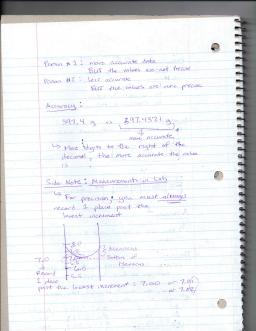 Person #1 : more accurate data
But the values are not precise
Person #2 : less accurate
But the values are more precise
Accuracy :
397.4 g vs 397.4321 g
more accurate
↳ More digits to the right of the
decimal, the more accurate the value
is
Side Note : Measurements in Lab
↳ For precision, you must always
record 1 place past the
lowest increment
8.0
Meniscus
7.0
Bottom of
Meniscus
6.0
5.5
Record
1 place
past the lowest increment = 7.00 or 7.01
or 7.02